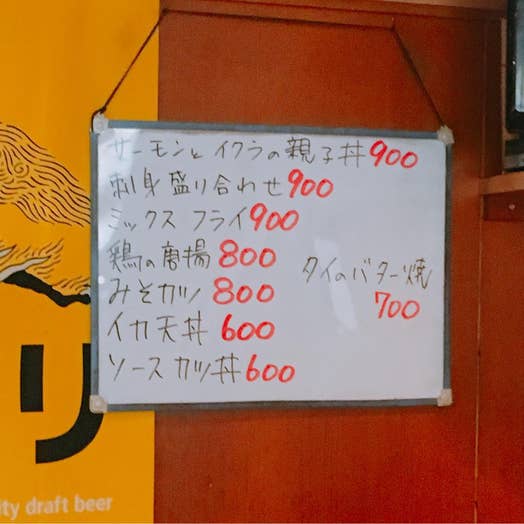 サーモンとイクラの親子丼 900
刺身盛り合わせ 900
ミックスフライ 900
鶏の唐揚 800
みそカツ 800
イカ天丼 600
ソースカツ丼 600
タイのバター焼
700
リ
ity draft beer